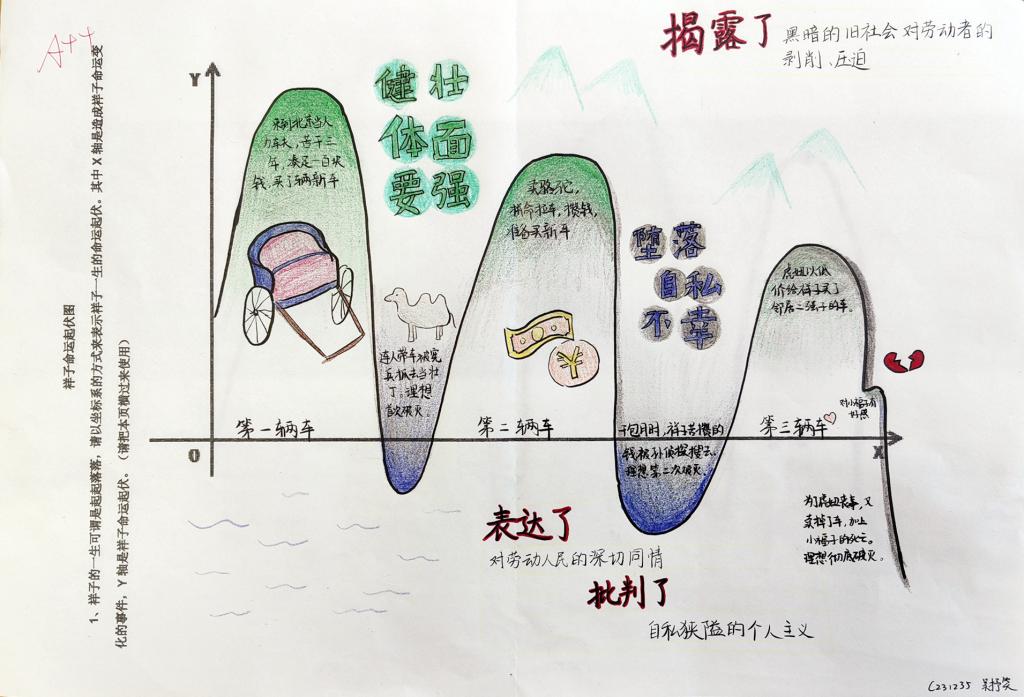 A++
祥子命运起伏图
1、祥子的一生可谓是起起落落，请以坐标系的方式来表示祥子一生的命运起伏。其中 X 轴是造成祥子命运变
化的事件，Y 轴是祥子命运起伏。（请把本页横过来使用）
揭露了
黑暗的旧社会对劳动者的
剥削、压迫
Y
健壮
体面
要强
来到北京当人
力车夫，苦干三
年，凑足一百块
钱，买了辆新车
卖骆驼，
拼命拉车，攒钱，
准备买新车
堕落
自私
不幸
虎妞以低
价给祥子买了
邻居二强子的车。
连人带车被宪
兵抓去当壮
丁。理想
首次破灭。
¥
对小福子有
好感
第一辆车
第二辆车
第三辆车
X
O
干包月时，祥子苦攒的
钱被孙侦探搜去。
理想第二次破灭。
为了虎妞丧事，又
卖掉了车，加上
小福子的死亡。
理想彻底破灭。
表达了
对劳动人民的深切同情
批判了
自私狭隘的个人主义
C231235